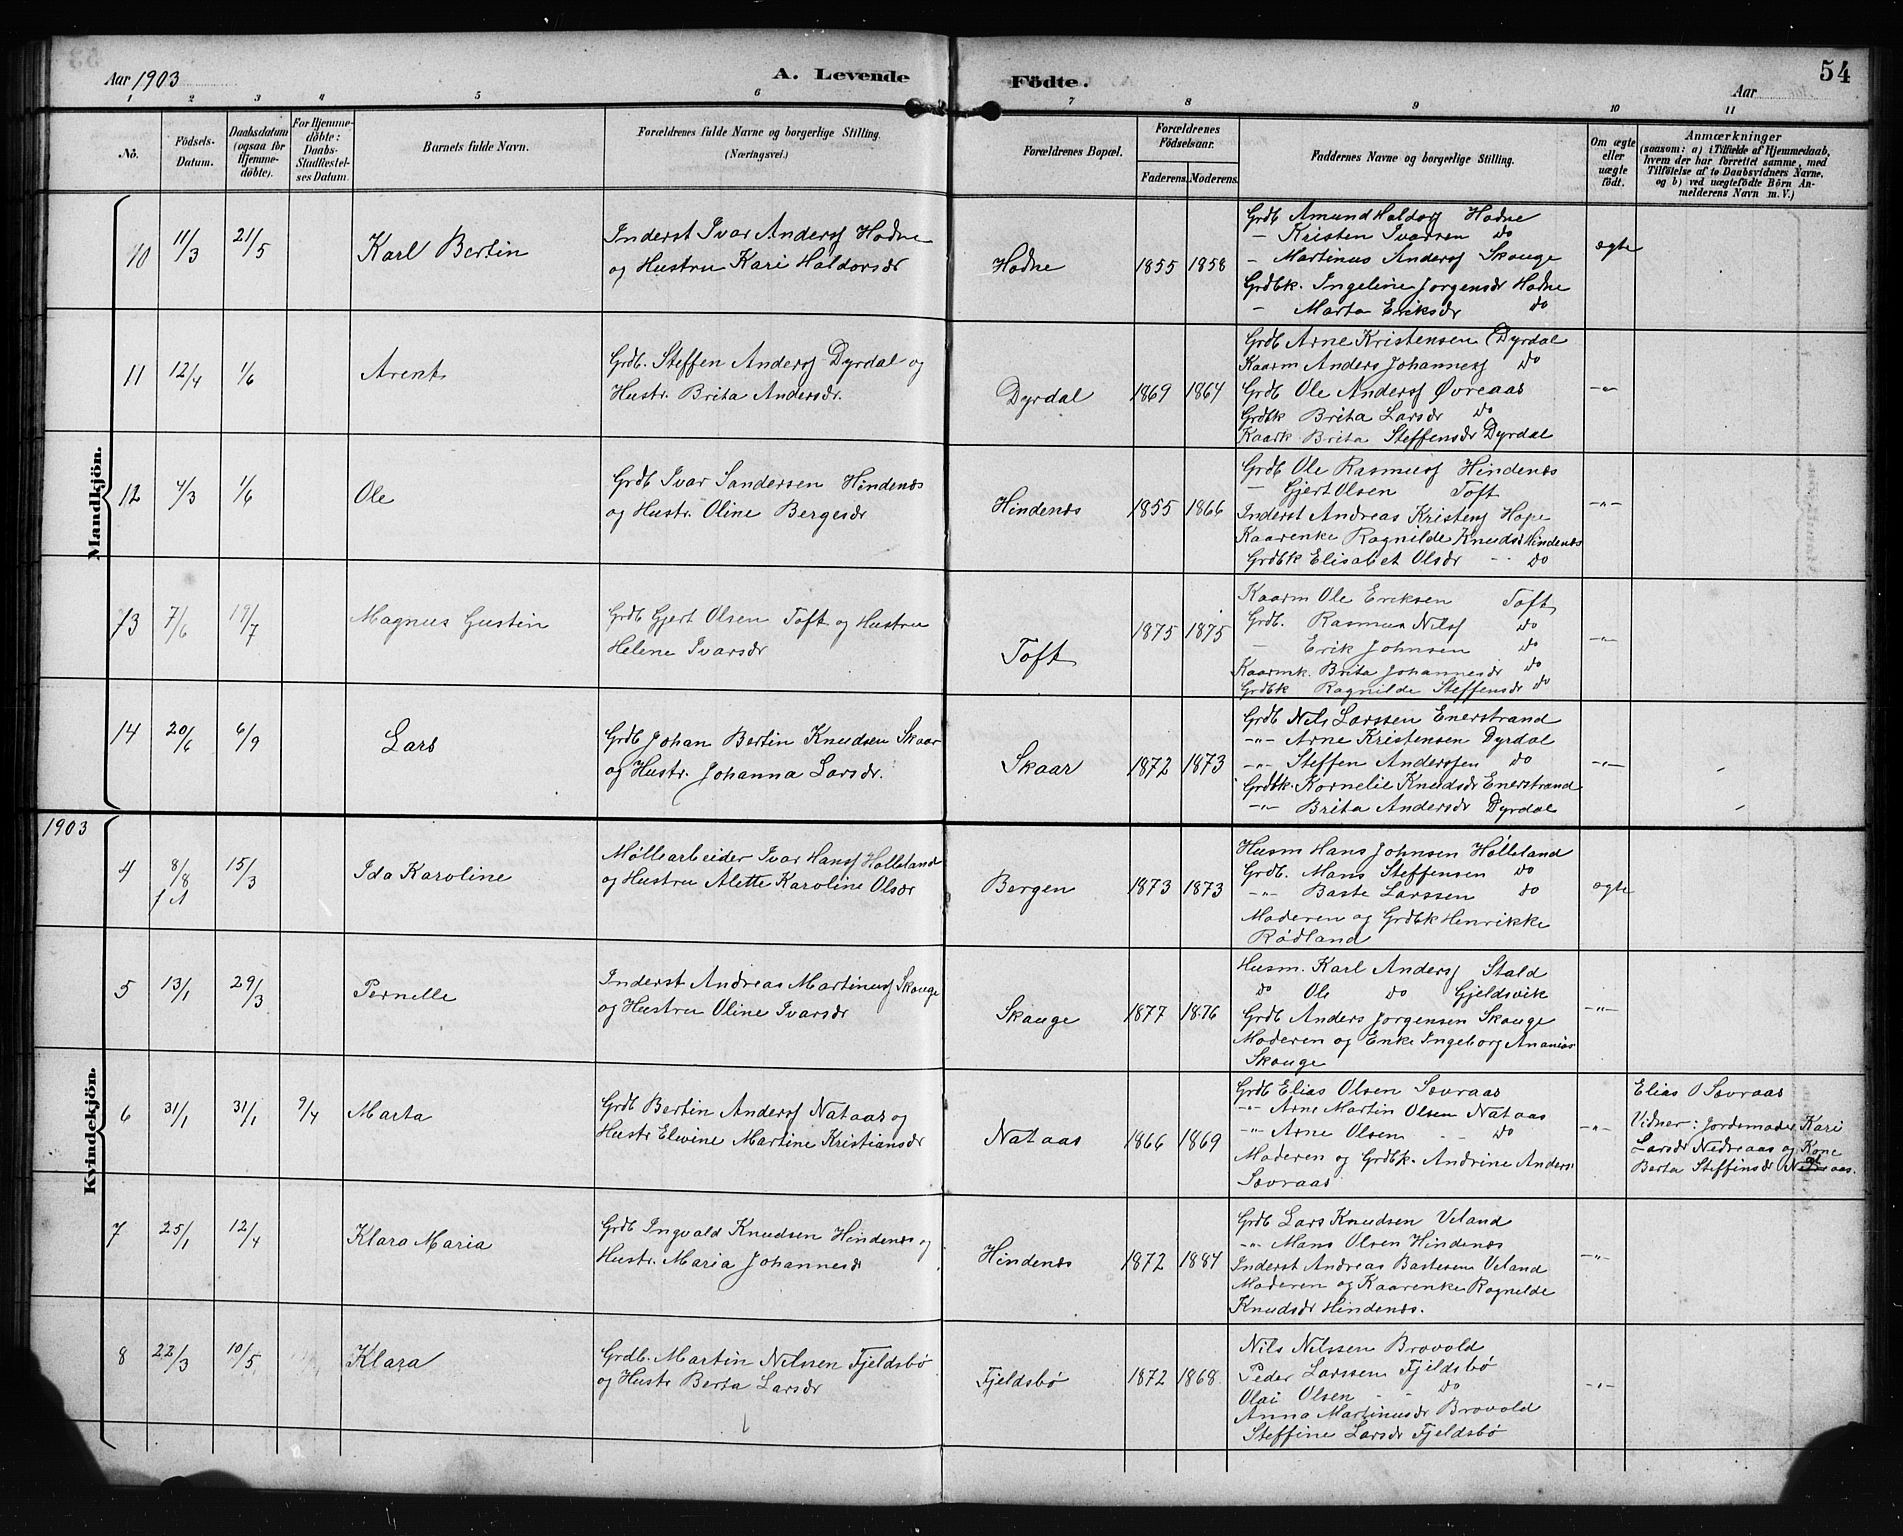 Aar 1903
A. Levende
Födte.
Aar
54
1 2 3 4 5 6 7 8 9 10 11
No.
Födsels-
Datum.
Daabsdatum
(ogsaa for
Hjemme-
döbte).
For Hjemme-
döbte:
Daabs-
Stadfæstel-
ses Datum.
Barnets fulde Navn.
Forældrenes fulde Navne og borgerlige Stilling.
(Næringsvei.)
Forældrenes Bopæl.
Forældrenes
Födselsaar.
Faderens. Moderens.
Faddernes Navne og borgerlige Stilling.
Om ægte
eller
uægte
født.
Anmærkninger
(saasom: a) i Tilfælde af Hjemmedaab,
hvem der har forrettet samme, med
Tilføielse af to Daabsvidners Navne,
og b) ved uægtefødte Börn An-
melderens Navn m. V.)
Mandkjön.
10 11/3 21/5 Karl Bertin
Inderst Ivar Anderss Hodne
og Hustru Kari Haldorsdr
Hodne 1855 1858
Grdb Amund Haldors Hodne
— Kristen Ivarsen do
- Martinus Anderss Skauge
Grdbk. Ingeline Jorgensdr Hodne
- Marta Eriksdr do
ægte
11 12/4 1/6 Arent
Grdb. Steffen Anderss Dyrdal og
Hustr. Brita Andersdr.
Dyrdal 1869 1864
Grdb Arne Kristensen Dyrdal
Kaarm Anders Johanness do
Grdb Ole Anderss Øvreaas
Grdbk Brita Larsdr do
Kaark Brita Steffensdr Dyrdal
-"-
12 4/3 1/6 Ole
Grdb Ivar Sandersen Hindenæs
og Hustr. Oline Bergesdr
Hindenæs 1855 1866
Grdb Ole Rasmuss Hindenæs
— Gjert Olsen Toft
Inderst Andreas Kristens Hope
Kaarenke Ragnilde Knudsdr Hindenæs
Grdbk Elisabet Olsdr - - do
-"-
13 7/6 19/7 Magnus Gustin
Grdb Gjert Olsen Toft og Hustru
Helene Ivarsdr
Toft 1875 1875
Kaarm Ole Eriksen Toft
Grdb. Rasmus Nilss do
- Erik Johnsen do
Kaarmk. Brita Johannesdr do
Grdbk Ragnilde Steffensdr do
-"-
14 20/6 6/9 Lars
Grdb Johan Bertin Knudsen Skaar
og Hustr. Johanna Larsdr.
Skaar 1872 1873
Grdb Nils Larssen Enerstrand
-"- Arne Kristensen Dyrdal
-"- Steffen Anderssen do
Grdbk. Kornelie Knudsdr Enerstrand
-"- Brita Andersdr Dyrdal
-"-
1903
Kvindekjön.
4 8/8 15/3 Ida Karoline
Møllearbeider Ivar Hanss Hølleland
og Hustru Alette Karoline Olsdr
Bergen 1873 1873
Husm Hans Johnsen Hølleland
Grdb. Mans Steffensen do
-"- Baste Larssen do
Moderen og Grdbk Henrikke
Rødland
ægte
5 13/1 29/3 Pernelle
Inderst Andreas Martinuss Skauge
og Hustru Oline Ivarsdr
Skauge 1877 1876
Husm. Karl Anderss Stald
do Ole do Gjeldsvik
Grdb Anders Jorgensen Skauge
Moderen og Enke Ingeborg Ananias
Skauge
-"-
6 31/1 31/1 9/4 Marta
Grdb Bertin Anderss Nataas og
Hustr Elvine Martine Kristiansdr
Nataas 1866 1869
Grdb Elias Olsen Sævraas
-"- Arne Martin Olsen Nataas
-"- Arne Olsen - - do
Moderen og Grdbk. Andrine Anders
Sævraas
-"-
Elias O Sævraas
Vidner: Jordemoder Kari
Larsdr Nedreaas og Kone
Berta Steffensdr Nedreaas.
7 25/1 12/4 Klara Maria
Grdb Ingvald Knudsen Hindenæs og
Hustr. Maria Johannesdr
Hindenæs 1872 1884
Grdb Lars Knudsen Veland
-"- Mans Olsen Hindenæs
Inderst Andreas Bastesen Veland
Moderen og Kaarenke Ragnilde
Knudsdr Hindenæs.
-"-
8 22/3 10/5 Klara
Grdb. Martin Nilssen Fjeldsbø
og Hustr Berta Larsdr
Fjeldsbø 1872 1868
Nils Nilssen Brovold
Peder Larssen Fjeldsbø
Olai Olsen - - do
Anna Martinusdr Brovold
Steffine Larsdr Fjeldsbø
-"-